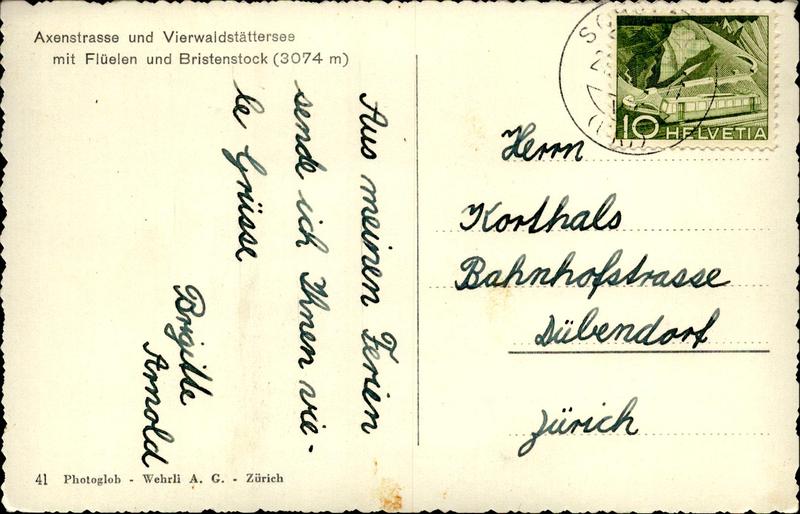 Axenstrasse und Vierwaldstättersee
mit Flüelen und Bristenstock (3074 m)
Aus meinen Ferien
sende ich Ihnen vie-
le Grüsse
Brigitte
Arnold
41 Photoglob - Wehrli A. G. - Zürich
10 HELVETIA
Herrn
Korthals
Bahnhofstrasse
Dübendorf
Zürich